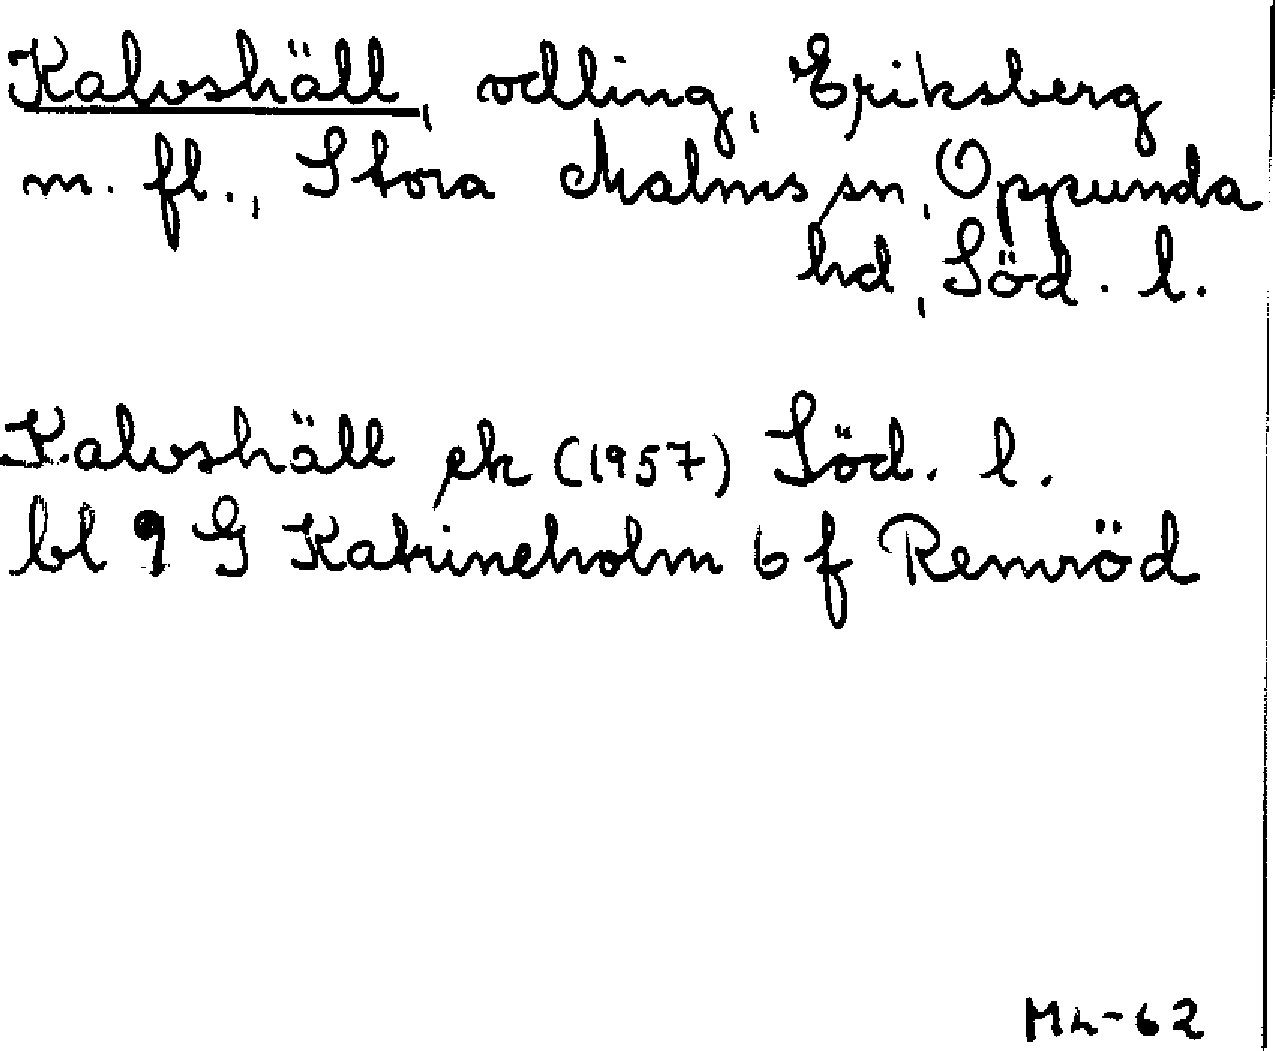 Kalvshäll, odling, Eriksberg
m. fl., Stora Malms sn, Oppunda
hd, Söd. l.
Kalvshäll ek (1957) Söd. l.
bl 9 G Katrineholm 6 f Remröd
Mh-62